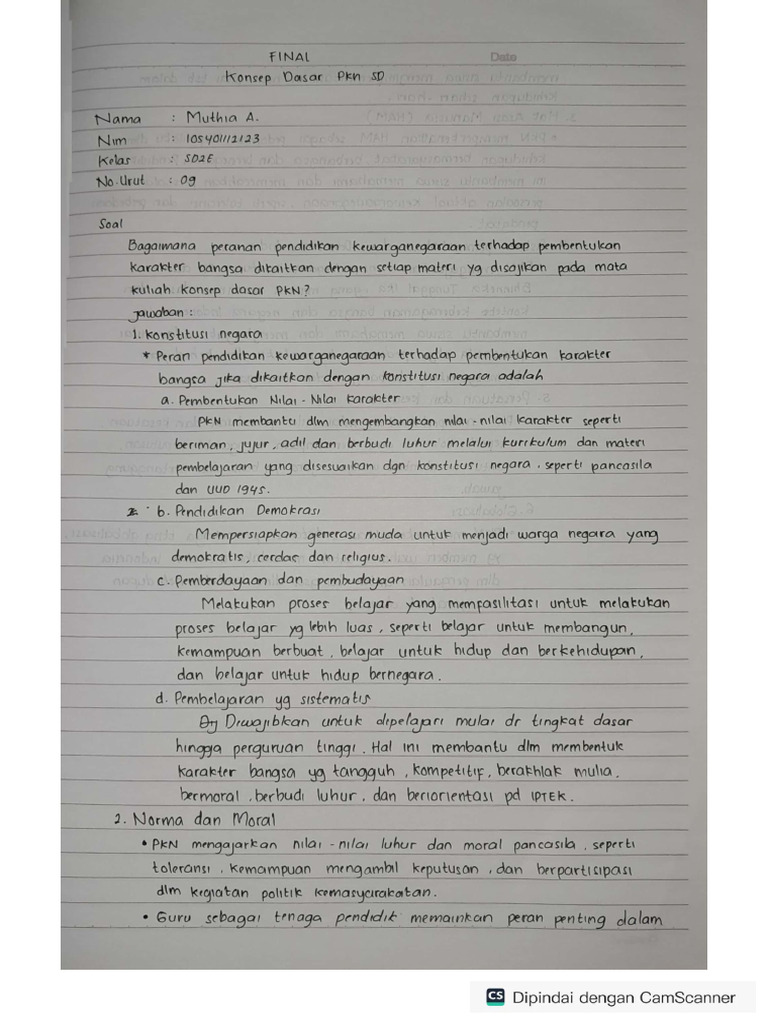 FINAL
Date
Konsep Dasar Pkn SD
Nama : Muthia A.
Nim : 105401112123
Kelas : SD2E
No. Urut : 09
Soal
Bagaimana peranan pendidikan kewarganegaraan terhadap pembentukan
karakter bangsa dikaitkan dengan setiap materi yg disajikan pada mata
kuliah konsep dasar PKN?
Jawaban :
1. Konstitusi negara
* Peran pendidikan kewarganegaraan terhadap pembentukan karakter
bangsa jika dikaitkan dengan konstitusi negara adalah
a. Pembentukan Nilai - Nilai karakter
PKN membantu dlm mengembangkan nilai - nilai karakter seperti
beriman, jujur, adil dan berbudi luhur melalui kurikulum dan materi
pembelajaran yang disesuaikan dgn konstitusi negara. seperti pancasila
dan UUD 1945.
b. Pendidikan Demokrasi
Mempersiapkan generasi muda untuk menjadi warga negara yang
demokratis, cerdas dan religius.
c. Pemberdayaan dan pembudayaan
Melakukan proses belajar yang mempasilitasi untuk melakukan
proses belajar yg lebih luas, seperti belajar untuk membangun,
kemampuan berbuat, belajar untuk hidup dan berkehidupan,
dan belajar untuk hidup bernegara.
d. Pembelajaran yg sistematis
Diwajibkan untuk dipelajari mulai dr tingkat dasar
hingga perguruan tinggi. Hal ini membantu dlm membentuk
karakter bangsa yg tangguh, kompetitif, berakhlak mulia,
bermoral, berbudi luhur, dan beriorientasi pd IPTEK.
2. Norma dan Moral
• PKN mengajarkan nilai - nilai luhur dan moral pancasila, seperti
toleransi, kemampuan mengambil keputusan, dan berpartisipasi
dlm kegiatan politik kemasyarakatan.
• Guru sebagai tenaga pendidik memainkan peran penting dalam
CS Dipindai dengan CamScanner